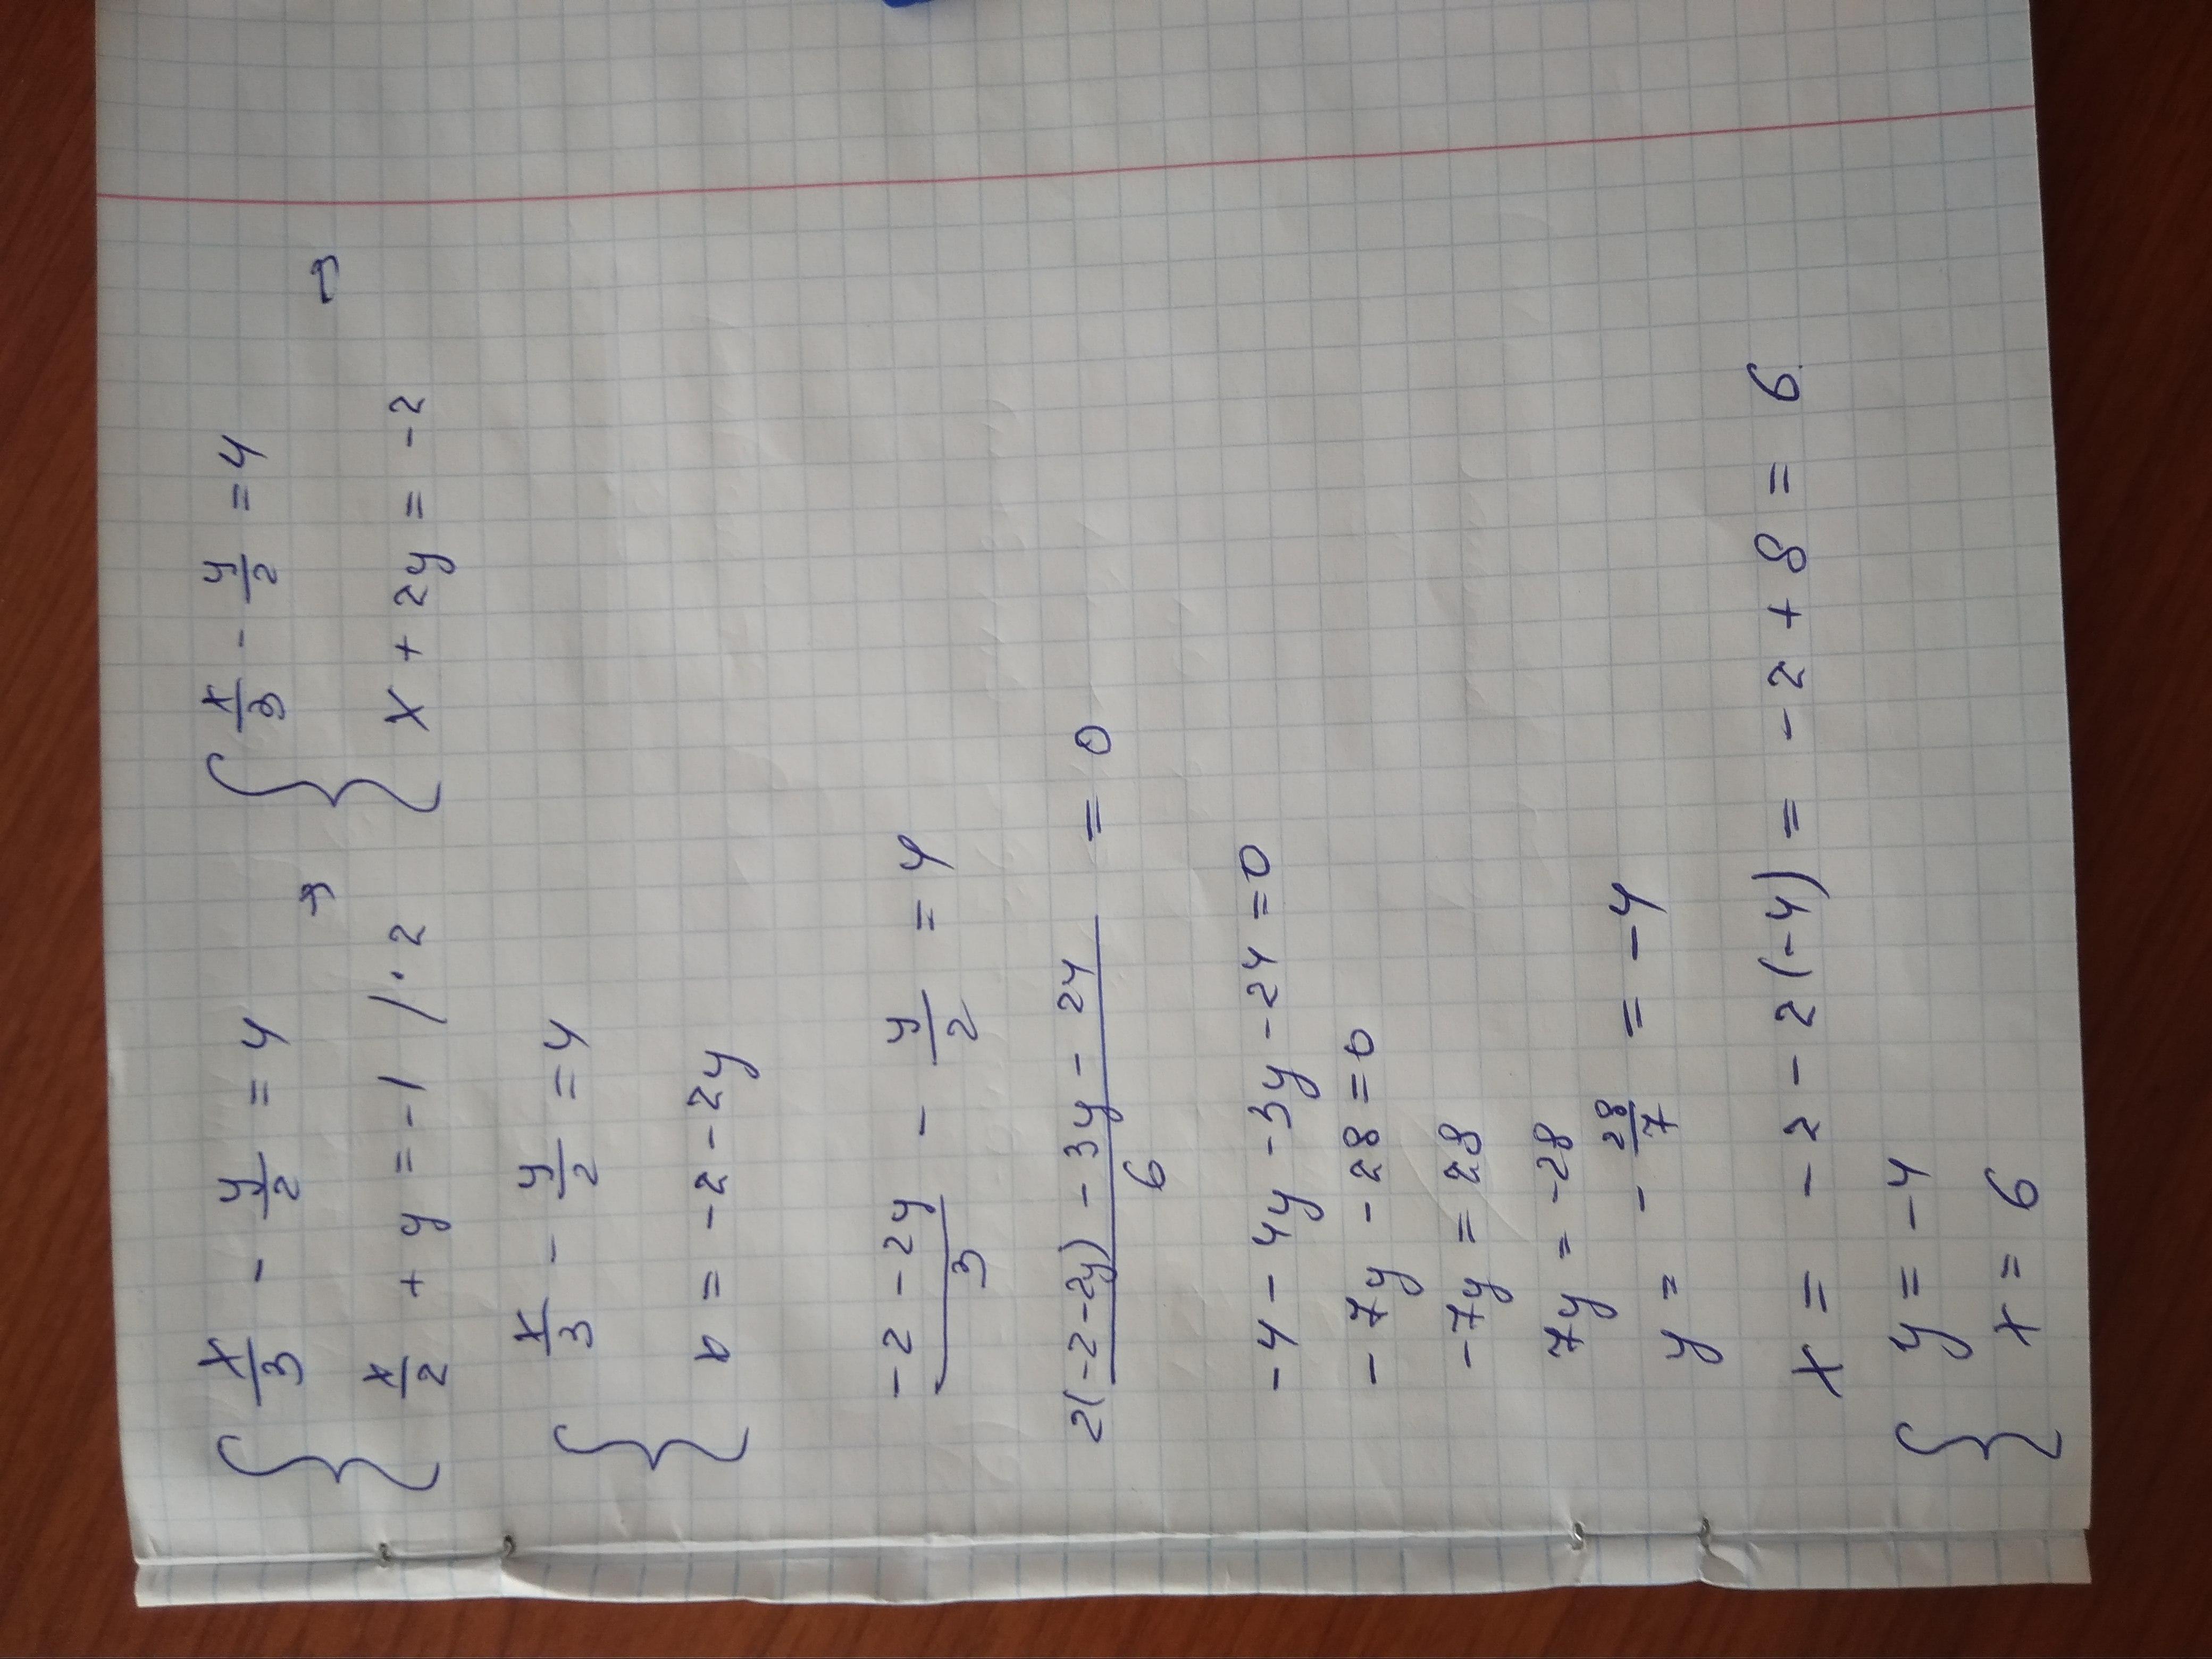 { x/3 - y/2 = 4 → { x/3 - y/2 = 4 →
x/2 + y = -1 /·2 x + 2y = -2
{ x/3 - y/2 = 4
x = -2 - 2y
(-2 - 2y)/3 - y/2 = 4
(2(-2-2y) - 3y - 24)/6 = 0
-4 - 4y - 3y - 24 = 0
-7y - 28 = 0
-7y = 28
7y = -28
y = -28/7 = -4
x = -2 - 2(-4) = -2 + 8 = 6
{ y = -4
x = 6